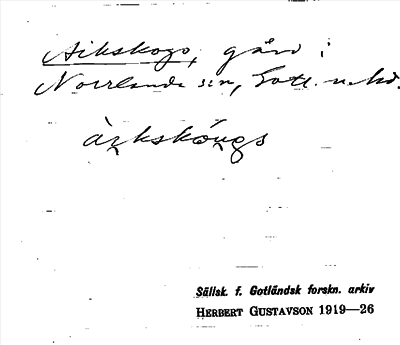 Aikskogs, gård i
Norrlanda sn, Gotl. n. hd.
ài̯kskóu̯gs
Sällsk. f. Gotländsk forskn. arkiv
HERBERT GUSTAVSON 1919—26